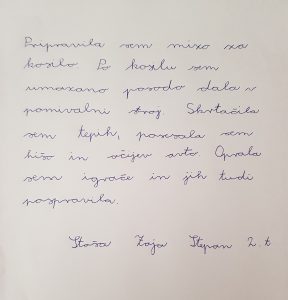 Pripravila sem mizo za
kosilo Po kosilu sem
umazano posodo dala v
pomivalni stroj. Skrtačila
sem tepih, posesala sem
hišo in očijev avto. Oprala
sem igrače in jih tudi
pospravila.
Staša Zaja Stepan 2. b